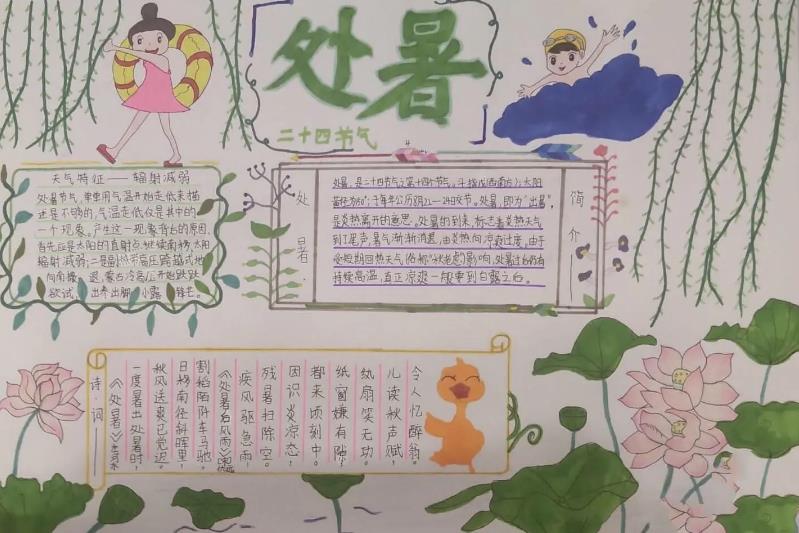 处暑
二十四节气
天气特征——辐射减弱
处暑节气,单单用气温开始走低来描
述是不够的,气温走低仅是其中的
一个现象。产生这一现象背后的原因,
首先应是太阳的直射点继续南移,太阳
辐射减弱;二是副热带高压跨越式地
向南撤退,蒙古冷高压开始跃跃
欲试,出拳出脚,小露锋芒。
处暑·
处暑,是二十四节气之第十四个节气。斗指戊(西南方);太阳
黄径为150°;于每年公历8月22—24日交节。处暑,即为“出暑”,
是炎热离开的意思。处暑的到来,标志着炎热天气
到了尾声,暑气渐渐消退,由炎热向凉爽过度,由于
受短期回热天气(俗称“秋老虎”)影响,处暑过后仍有
持续高温,真正凉爽一般要到白露之后。
简介·
令人忆醉翁。
儿读秋声赋,
纨扇笑无功。
纸窗嫌有隙,
都来顷刻中。
因识炎凉态,
残暑扫除空。
疾风驱急雨,
《处暑后风雨》
割稻陌阡车马驰。
日移南径斜晖里,
秋风送爽已觉迟。
一度暑出处暑时,
《处暑》
诗·词